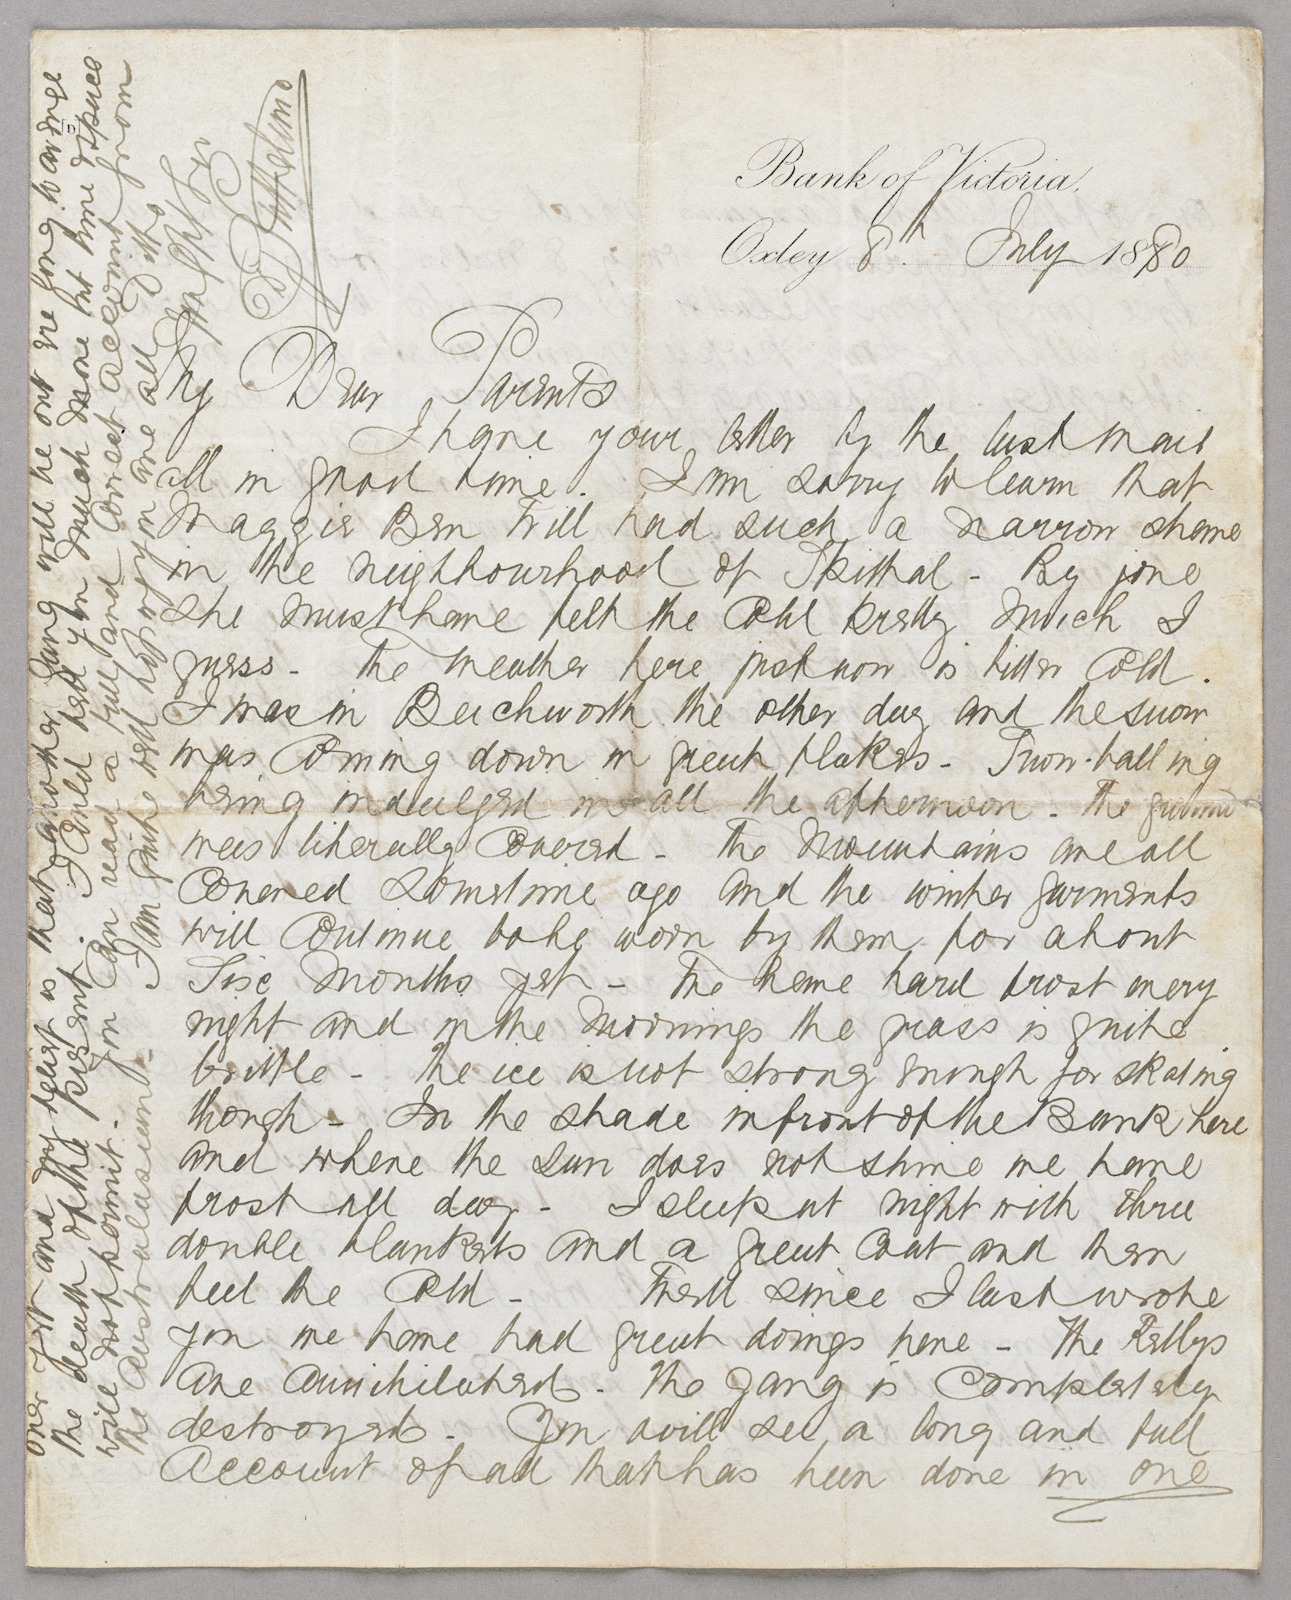 Bank of Victoria.
Oxley 8th July 1880
My Dear Parents
I have your letter by the last mail
all in good time. I am sorry to learn that
Maggie Ben Will had such a narrow shave
in the neighbourhood of - By jove
She must have felt the Cold pretty much I
guess - The weather here just now is bitter Cold.
I was in Beechworth the other day and the snow
was Coming down in great flakes - Snow-balling
being indulged in all the afternoon - The ground
was literally Covered - The Mountains are all
Covered Sometime ago and the winter garments
will Continue to be worn by them for about
Six Months yet - We have hard frost every
night and in the Mornings the grass is quite
brittle - The ice is not strong enough for skating
though - In the shade in front of the Bank here
and where the Sun does not shine we have
frost all day - I sleep at night with three
double blankets and a great Coat and then
feel the Cold - Well since I last wrote
you we have had great doings here - The Kellys
are annihilated - The gang is Completely
destroyed - You will see a long and full
Account of all that has been done in one
the death of the present. I Could tell you much more but time & space
will not permit - You Can read a full and Correct account from
the Australasian - I am quite well hope you are all Ditto